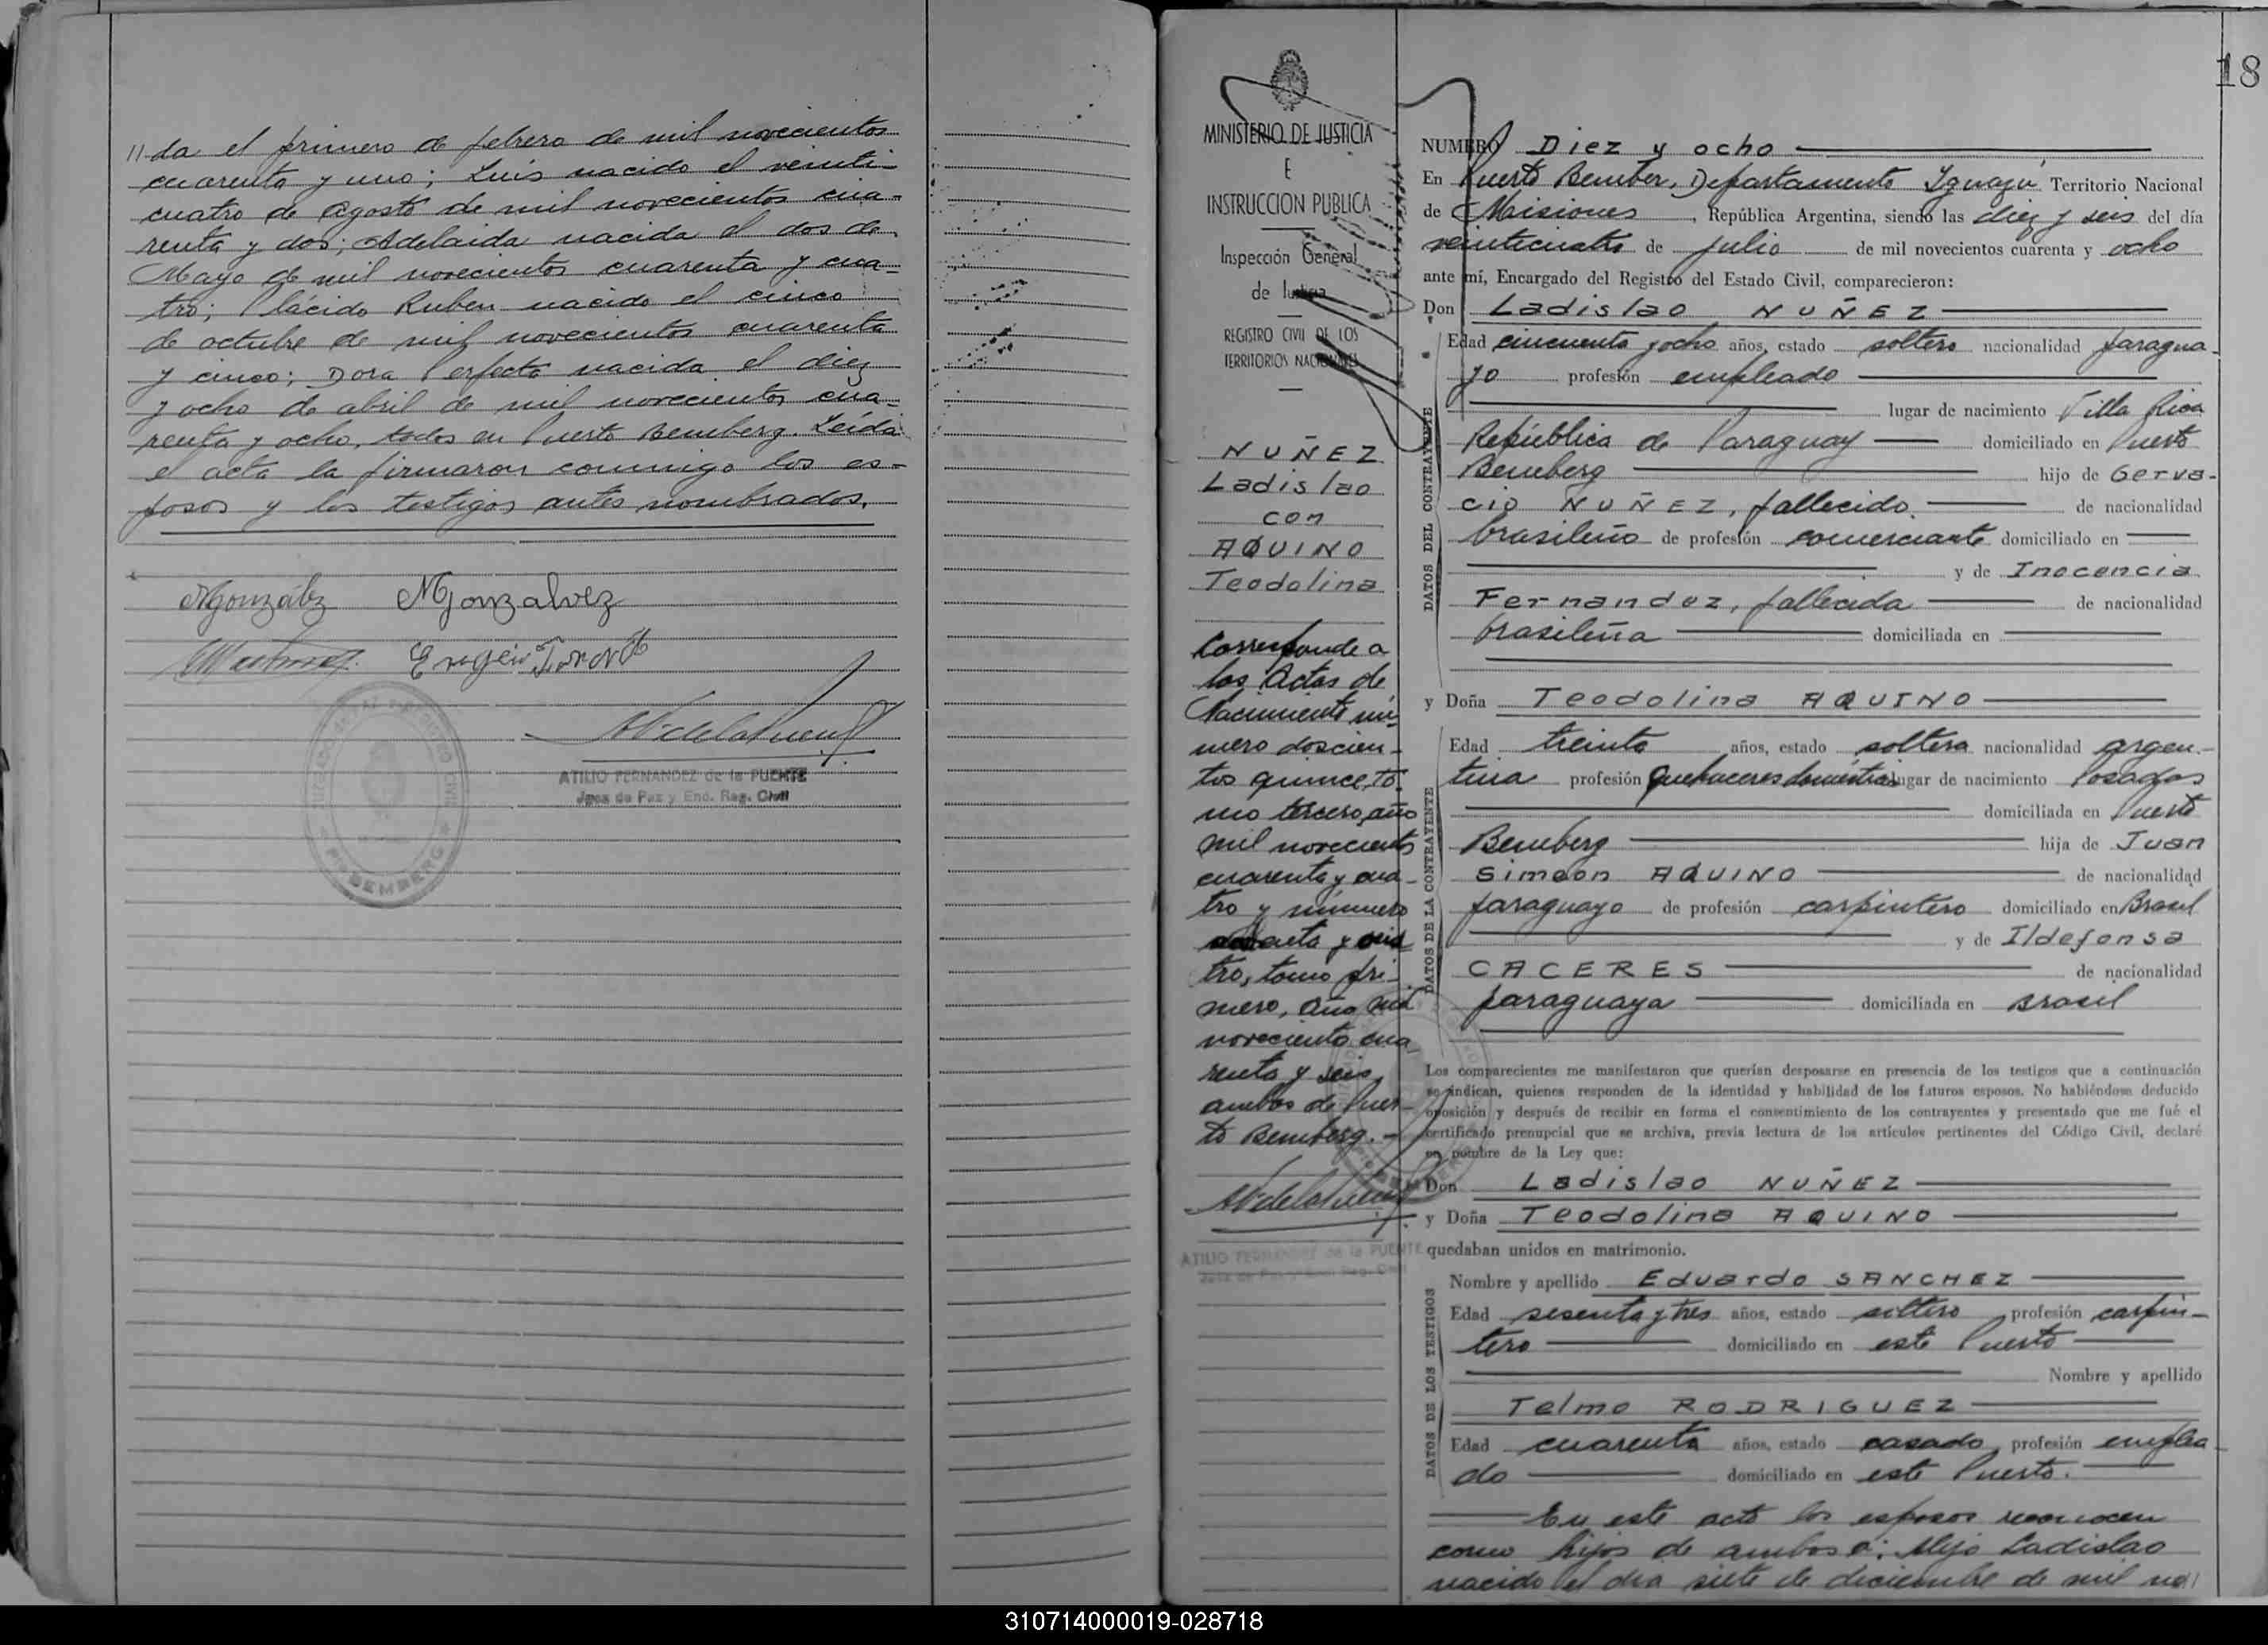 //da el primero de febrero de mil novecientos
cuarenta y uno; Luis nacido el veinti-
cuatro de agosto de mil novecientos cua-
renta y dos; Adelaida nacida el dos de
Mayo de mil novecientos cuarenta y cua-
tro; Plácido Ruben nacido el cinco
de octubre de mil novecientos cuarenta
y cinco; Dora Perfecta nacida el diez
y ocho de abril de mil novecientos cua-
renta y ocho, todos en Puerto Bemberg. Leída
el acta la firmaron conmigo los es-
posos y los testigos antes nombrados.
MGonzalvez
ATILIO FERNANDEZ de la PUENTE
Juez de Paz y Enc. Reg. Civil
18
MINISTERIO DE JUSTICIA
E
INSTRUCCION PUBLICA
Inspección General
de Justicia
REGISTRO CIVIL DE LOS
TERRITORIOS NACIONALES
NUÑEZ
Ladislao
con
AQUINO
Teodolina
Corresponde a
las Actas de
Nacimiento nú-
mero doscien-
tos quince, to-
mo tercero, año
mil novecientos
cuarenta y cua-
tro y número
tro, tomo pri-
mero, año mil
novecientos cua
renta y seis
ambos de Puer-
to Bemberg.-
ATILIO FERNANDEZ de la PUENTE
Juez de Paz y Enc. Reg. Civil
NUMERO Diez y ocho
En Puerto Bember, Departamento Yguazú Territorio Nacional
de Misiones, República Argentina, siendo las diez y seis del día
veinticuatro de julio de mil novecientos cuarenta y ocho
ante mí, Encargado del Registro del Estado Civil, comparecieron:
Don Ladislao NUÑEZ
DATOS DEL CONTRAYENTE
Edad cincuenta y ocho años, estado soltero nacionalidad paragua-
yo profesión empleado
lugar de nacimiento Villa Rica
República de Paraguay domiciliado en Puerto
Bemberg hijo de Gerva-
cio NUÑEZ, fallecido. de nacionalidad
brasileño de profesión comerciante domiciliado en
y de Inocencia
Fernandez, fallecida de nacionalidad
brasileña domiciliada en
y Doña Teodolina AQUINO
DATOS DE LA CONTRAYENTE
Edad treinta años, estado soltera nacionalidad argen-
tina profesión Quehaceres domésticos lugar de nacimiento Posadas
domiciliada en Puerto
Bemberg hija de Juan
Simeon AQUINO de nacionalidad
paraguayo de profesión carpintero domiciliado en Brasil
y de Ildefonsa
CACERES de nacionalidad
paraguaya domiciliada en Brasil
Los comparecientes me manifestaron que querían desposarse en presencia de los testigos que a continuación
se indican, quienes responden de la identidad y habilidad de los futuros esposos. No habiéndose deducido
oposición y después de recibir en forma el consentimiento de los contrayentes y presentado que me fué el
certificado prenupcial que se archiva, previa lectura de los artículos pertinentes del Código Civil, declaré
en nombre de la Ley que:
Don Ladislao NUÑEZ
y Doña Teodolina AQUINO
quedaban unidos en matrimonio.
DATOS DE LOS TESTIGOS
Nombre y apellido Eduardo SANCHEZ
Edad sesenta y tres años, estado soltero profesión carpin-
tero domiciliado en este Puerto
Nombre y apellido
Telmo RODRIGUEZ
Edad cuarenta años, estado casado, profesión emplea
do domiciliado en este Puerto.
En este acto los esposos reconocen
como hijos de ambos a: Alejo Ladislao
nacido el dia siete de diciembre de mil no//
310714000019-028718